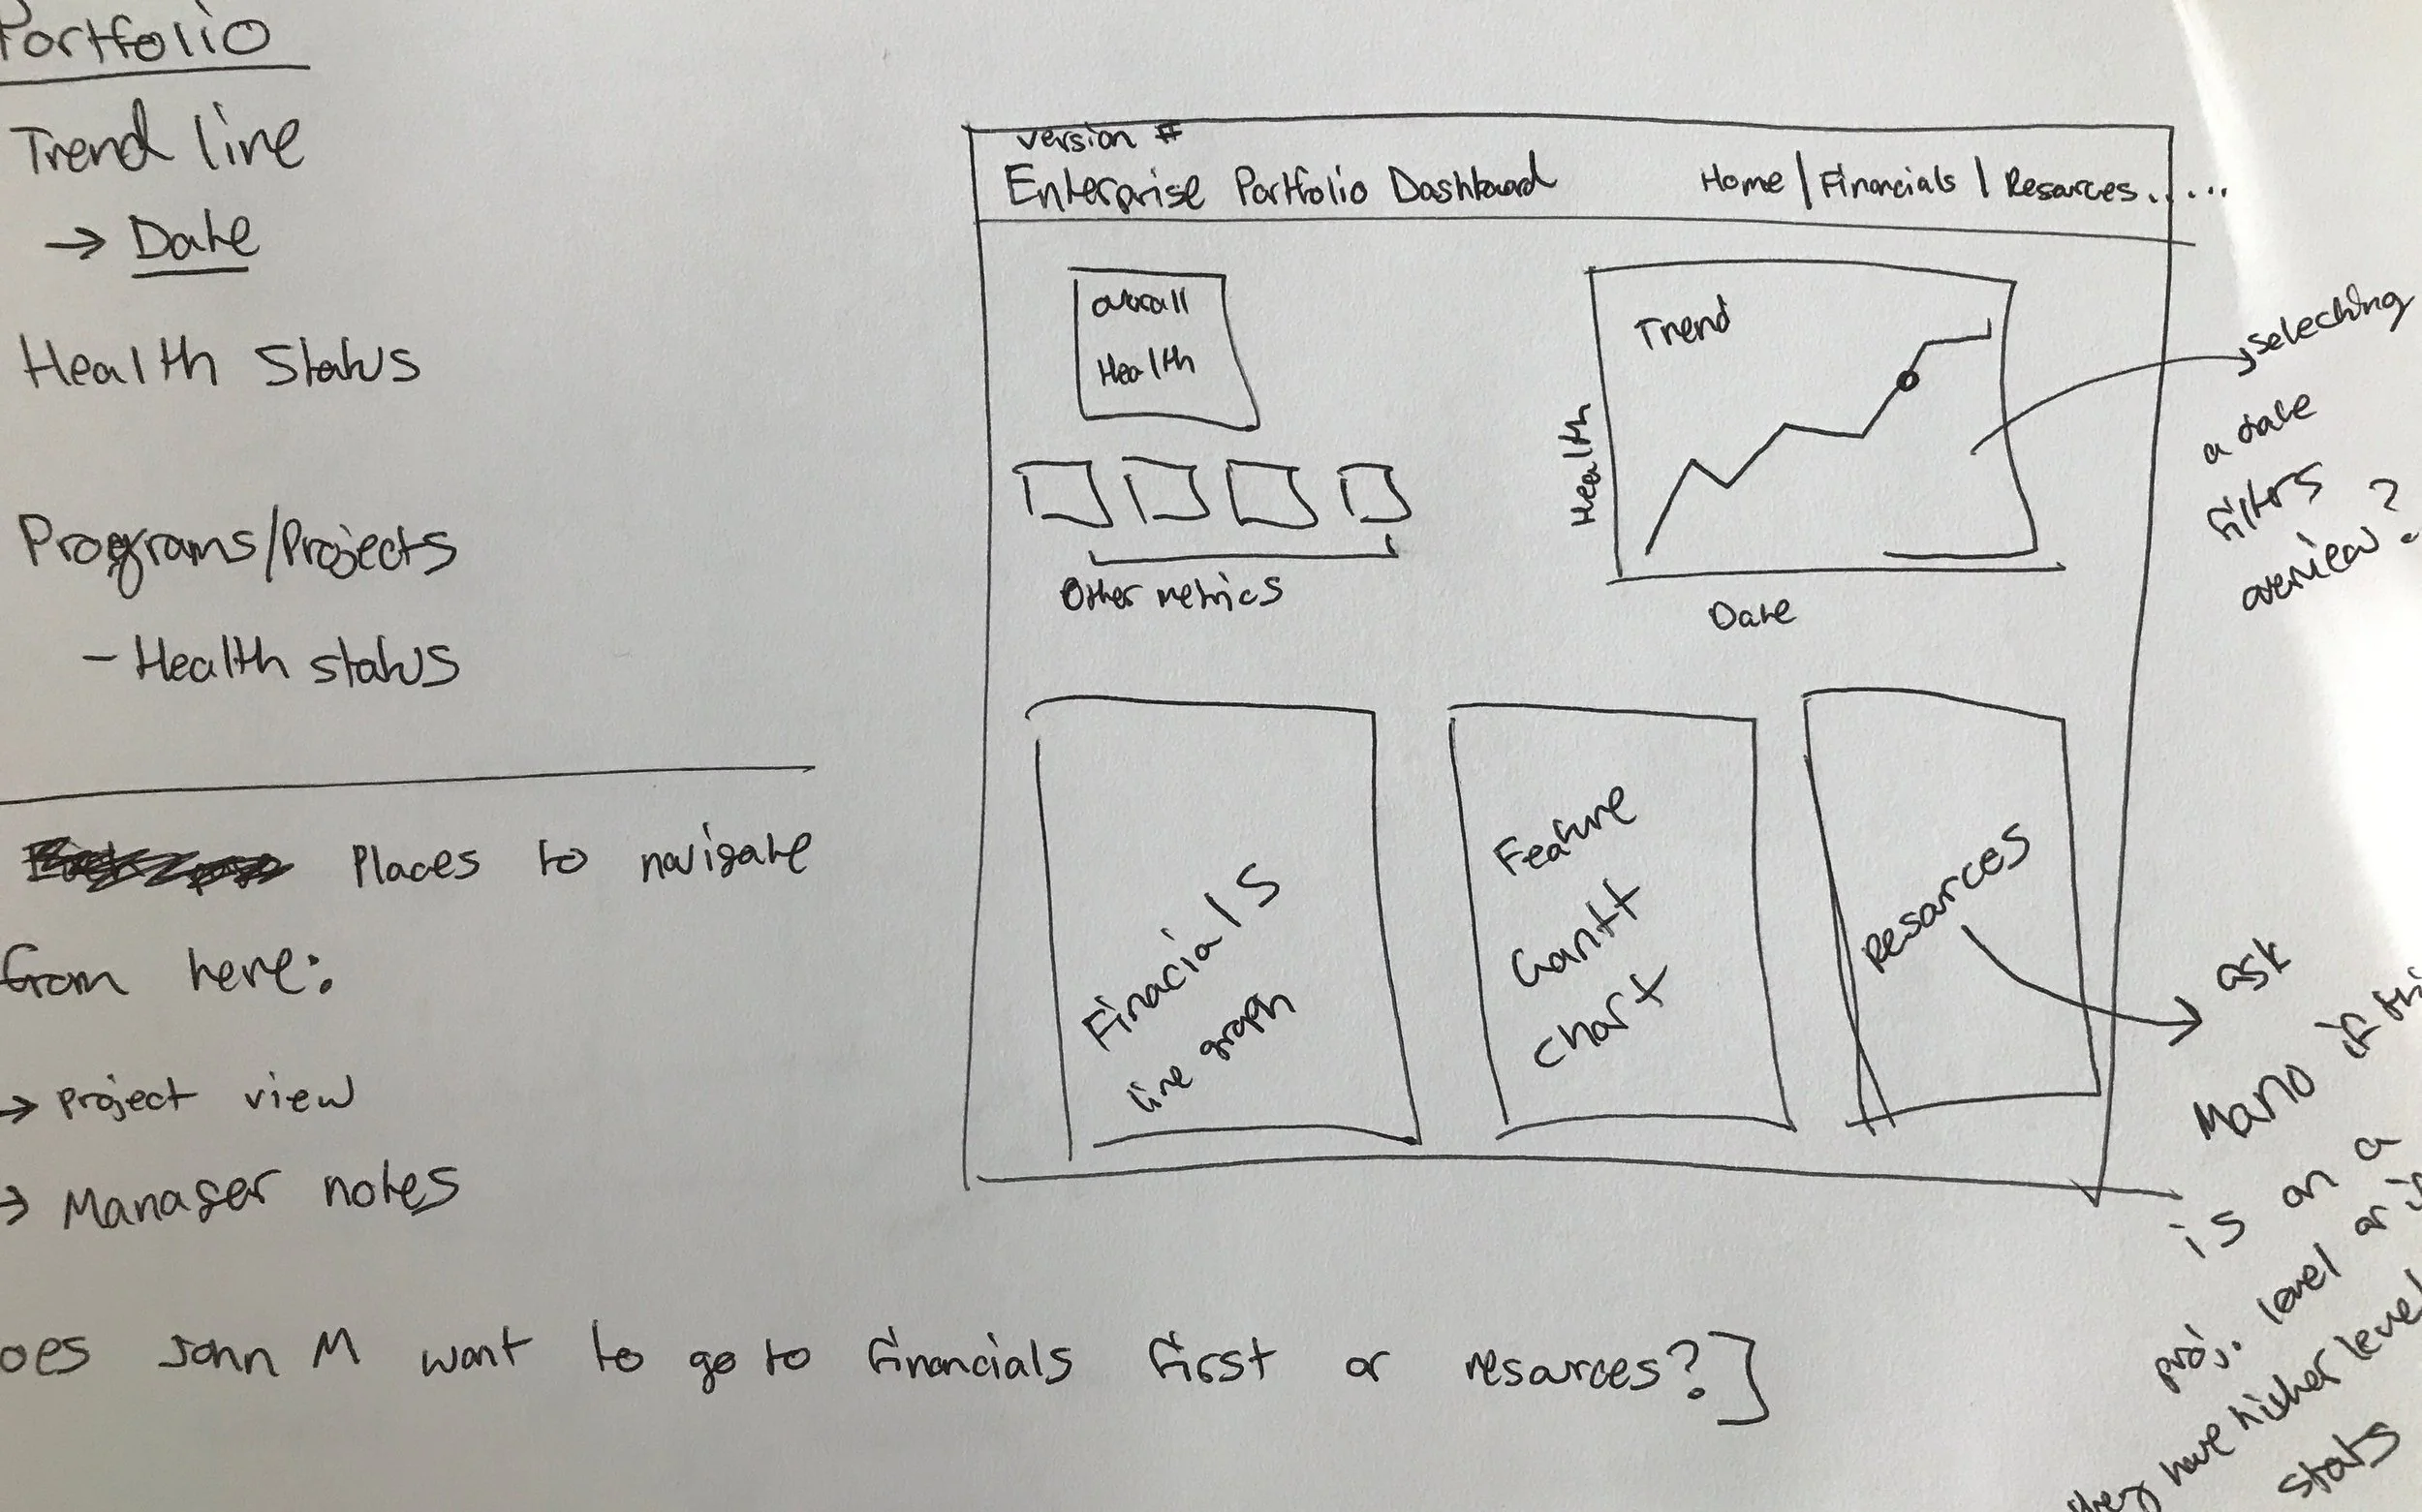 Portfolio
Trend line
→ Date
Health Status
Programs/Projects
- Health status
Places to navigate
from here:
→ Project view
→ Manager notes
oes John M want to go to financials first or resources?]
version #
Enterprise Portfolio Dashboard
Home | Financials | Resources.....
overall
Health
Other metrics
Trend
Health
Date
selecting
a date
filters
overview?
Finacials
line graph
Feature
Gantt
chart
Resources
ask
Mario if thi
is on a
proj. level or if
they have higher level
stats